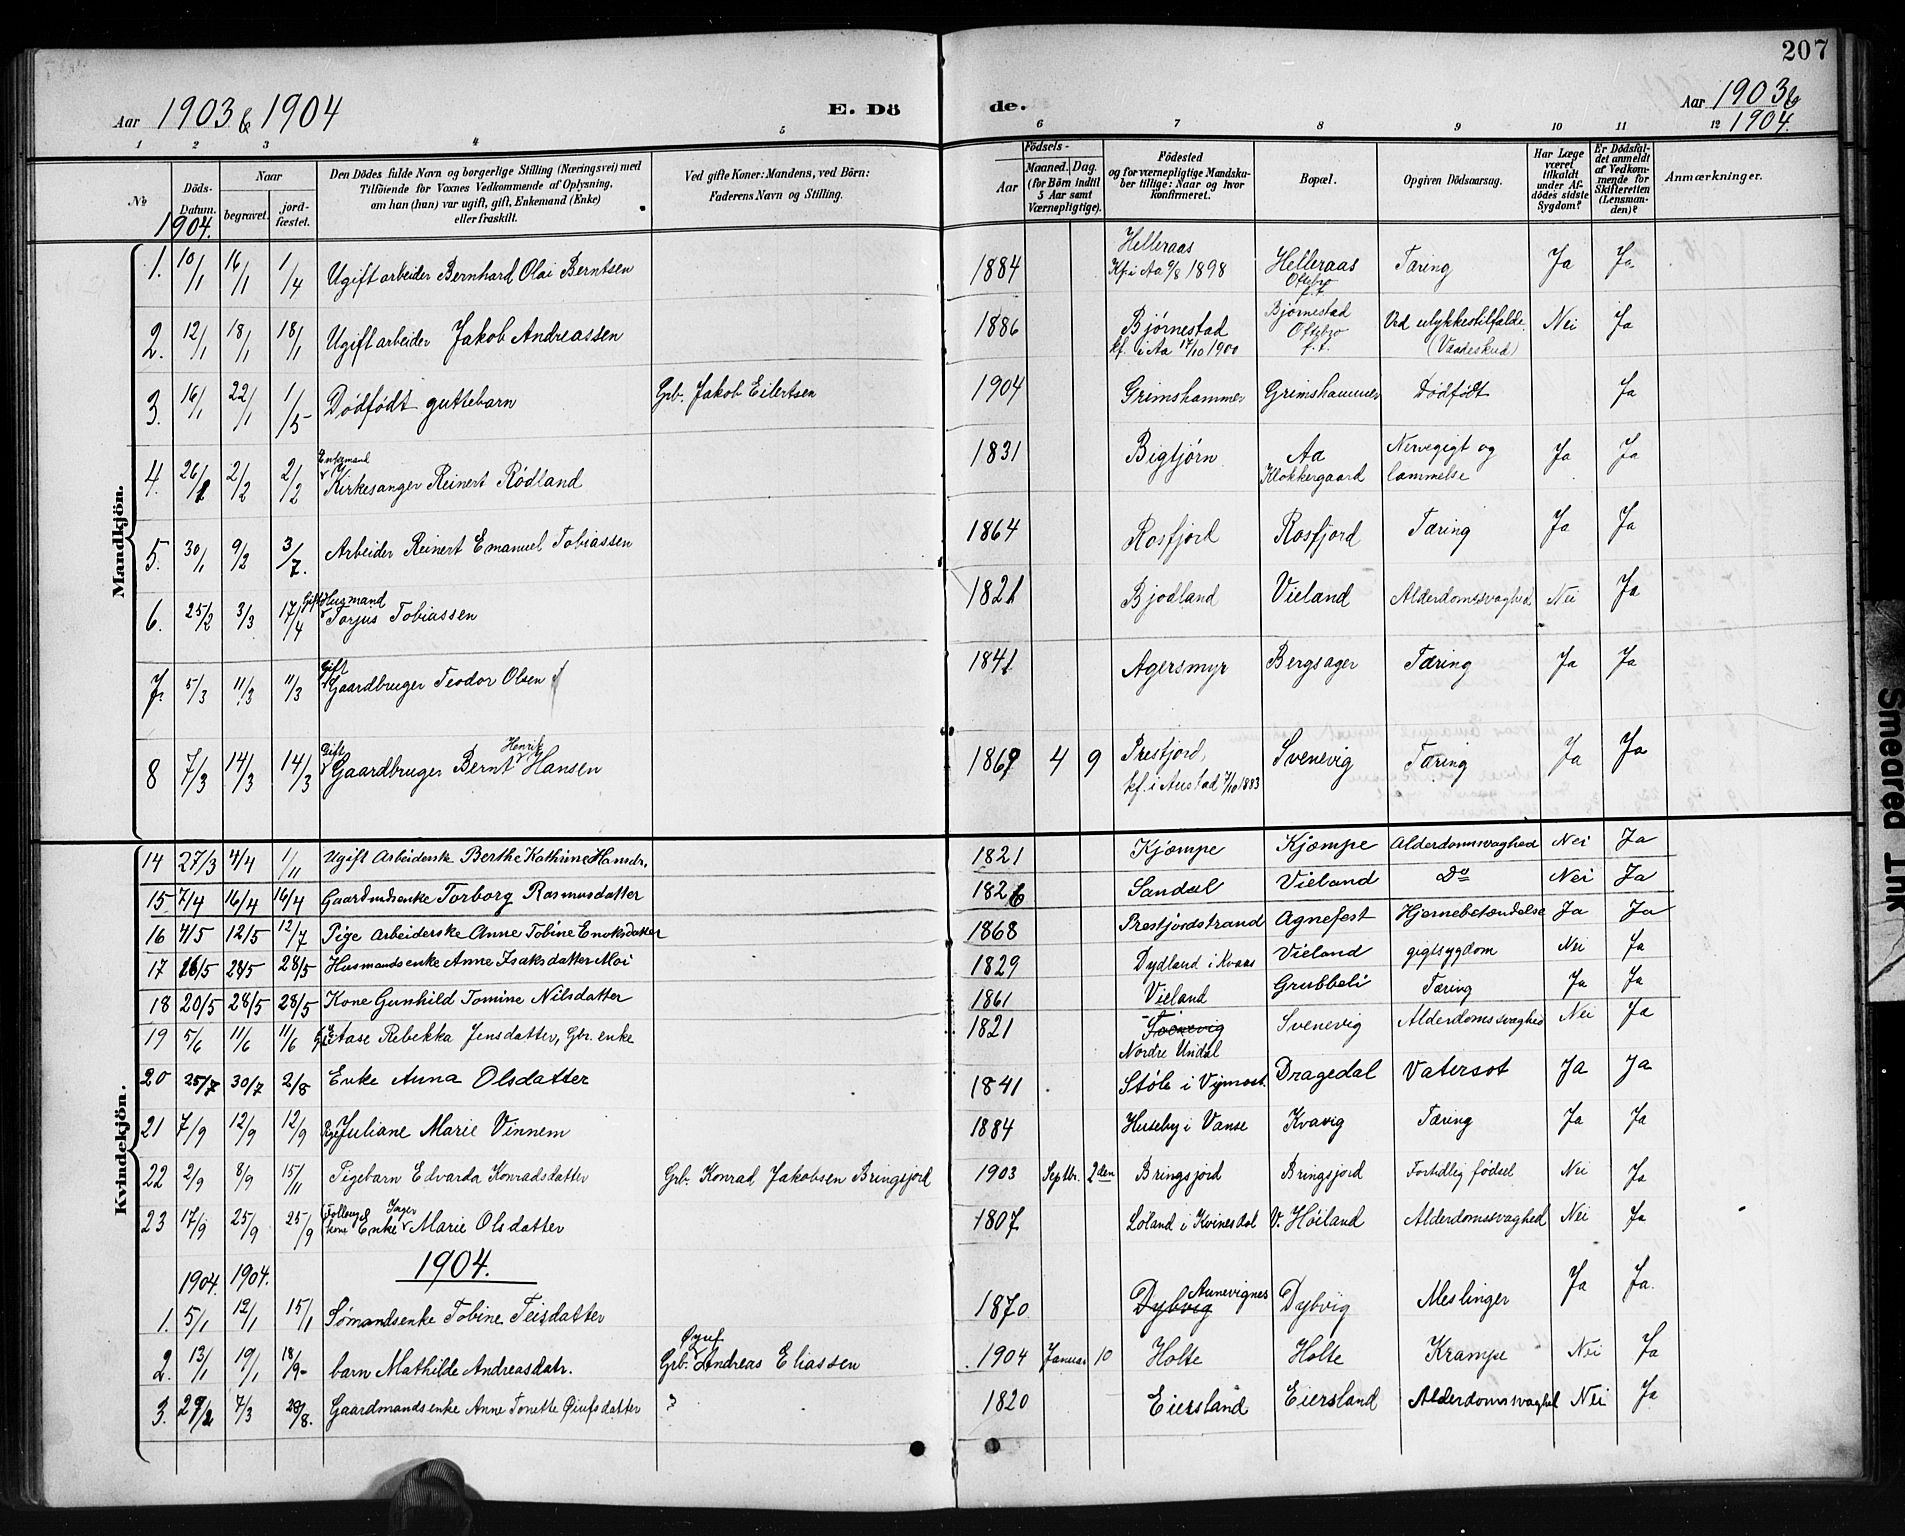 207
Aar 1903 & 1904
E. Dö
de.
Aar 1903 &
1904.
1 2 3 4 5 6 7 8 9 10 11 12
No
Döds-
Datum.
Naar
begravet.
jord-
fæstet.
Den Dödes fulde Navn og borgerlige Stilling (Næringsvei) med
Tilföiende for Voxnes Vedkommende af Oplysning,
om han (hun) var ugift, gift, Enkemand (Enke)
eller fraskilt.
Ved gifte Koner: Mandens, ved Börn:
Faderens Navn og Stilling.
Födsels-
Aar
Maaned. Dag.
(for Börn indtil
5 Aar samt
Værnepligtige).
Födested
og for værnepligtige Mandska-
ber tillige: Naar og hvor
konfirmeret.
Bopæl.
Opgiven Dödsaarsag.
Har Læge
været
tilkaldt
under Af-
dödes sidste
Sygdom?
Er Dödsfal-
det anmeldt
af Vedkom-
mende for
Skifteretten
(Lensman-
den)?
Anmærkninger.
1904.
Mandkjön.
1. 10/1 16/1 1/4 Ugift arbeider Bernhard Olai Berntsen 1884 Helleraas Kf. i Aa 9/8 1898 Helleraas Oftebro f.f. Tæring Ja Ja
2. 12/1 18/1 18/1 Ugift arbeider Jakob Andreassen 1886 Bjørnestad kf. i Aa 17/10 1900 Bjørnestad Oftebro f.f. Ved ulykkestilfælde (Vaadeskud) Nei Ja
3. 16/1 22/1 1/5 Dödfödt guttebarn Grb. Jakob Eilertsen 1904 Grimshammer Grimshammer Dödfödt Ja
4. 26/1 2/2 2/2 Enkemand Kirkesanger Reinert Rødland 1831 Bigtjørn Aa Klokkergaard Nervegigt og lammelse Ja Ja
5. 30/1 9/2 3/7. Arbeider Reinert Emanuel Tobiassen 1864 Rosfjord Rosfjord Tæring Ja Ja
6. 25/2 3/3 17/4 Gift Husmand Torjus Tobiassen 1821 Bjodland Vieland Alderdomssvaghed Nei Ja
7. 5/3 11/3 11/3 Gift Gaardbruger Teodor Olsen 1841 Agersmyr Bergsager Tæring Ja Ja
8 7/3 14/3 14/3 Gift Gaardbruger Bernt Henrik Hansen 1869 4 9 Prestjord, kf. i Austad 7/10 1883 Svenevig Tæring Ja Ja
Kvindekjön.
14 27/3 4/4 1/11 Ugift Arbeiderske Berthe Kathrine Hansdr. 1821 Kjæmpe Kjæmpe Alderdomsvaghed Nei Ja
15 7/4 16/4 16/4 Gaardmdsenke Torborg Rasmusdatter 1826 Sandal Vieland Do Nei Ja
16 4/5 12/5 12/7 Pige Arbeiderske Anne Tobine Enoksdatter 1868 Prestjordstrand Agnefest Hjernebetændelse Ja Ja
17 16/5 28/5 28/5 Husmandsenke Anne Isaksdatter Moi 1829 Dydland i Kvaas Vieland gigtsygdom Nei Ja
18 20/5 28/5 28/5 Kone Gunhild Tomine Nilsdatter 1861 Vieland Grubbeli Tæring Ja Ja
19 5/6 11/6 11/6 Aase Rebekka Jensdatter, Gbr. enke 1821 Nordre Undal Svenevig Alderdomssvaghed Nei Ja
20 25/7 30/7 2/8 Enke Anna Olsdatter 1841 Støle i Vigmost. Dragedal Vatersot Ja Ja
21 7/9 12/9 12/9 Pige Juliane Marie Vinnem 1884 Huseby i Vanse Kvavig Tæring Ja Ja
22 2/9 8/9 15/11 Pigebarn Edvarda Konradsdatter Grb. Konrad Jakobsen Bringsjord 1903 Septbr. 2den Bringsjord Bringsjord Fortidlig födsel Nei Ja
23 17/9 25/9 25/9 Enke Marie Olsdatter 1807 Loland i Kvinesdal V. Höiland Alderdomssvaghed Nei Ja
1904. 1904. 1904.
1. 5/1 12/1 15/1 Sømandsenke Tobine Teisdatter 1870 Dybvig Aunevignes Dybvig Meslinger Ja Ja.
2. 13/1 19/1 18/9 barn Mathilde Andreasdatr. Grb. Øyuf Andreas Eliassen 1904 Januar 10 Holte Holte Krampe Nei Ja
3. 29/2 7/3 28/8. Gaardmandsenke Anne Tonette Øiufsdatter 1820 Eiersland Eiersland Alderdomssvaghed Nei Ja
Smeared Ink